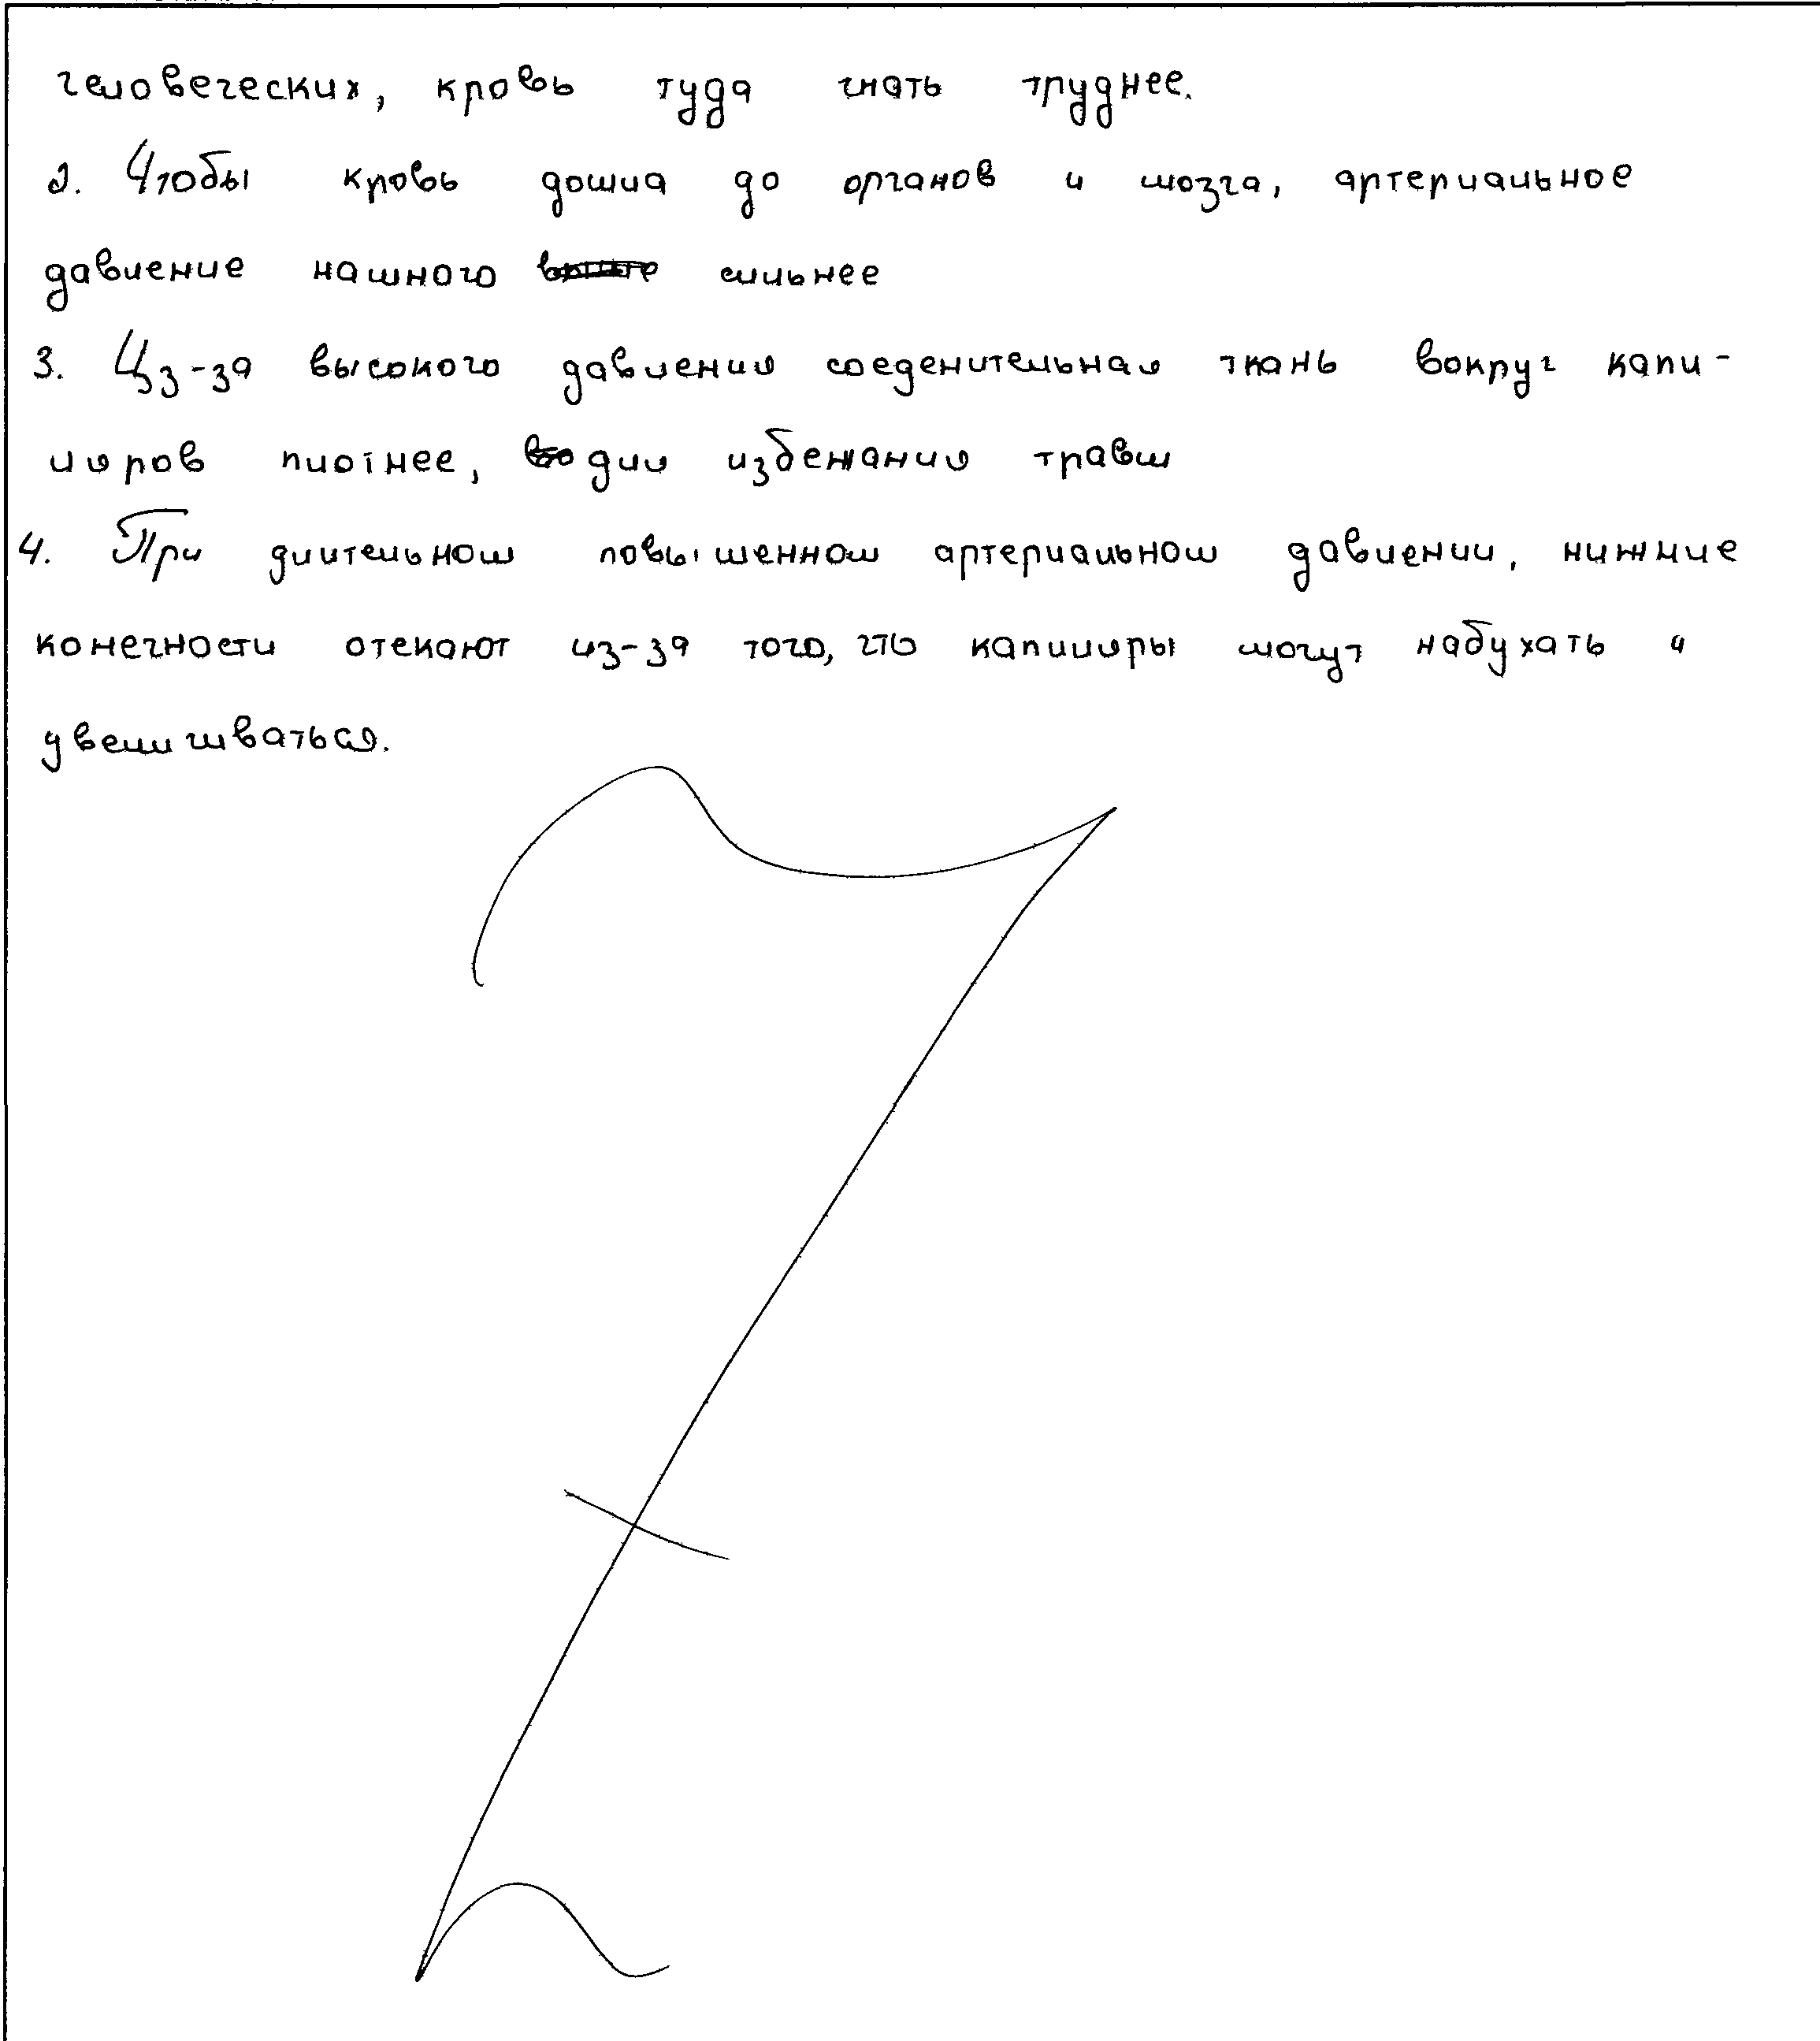 человеческих, кровь туда гнать труднее.
2. Чтобы кровь дошла до органов и мозга, артериальное
давление намного сильнее
3. Из-за высокого давления соеденительная ткань вокруг капи-
ляров плотнее, для избежания травм
4. При длительном повышенном артериальном давлении, нижние
конечности отекают из-за того, что капилляры могут набухать и
увеличиваться.